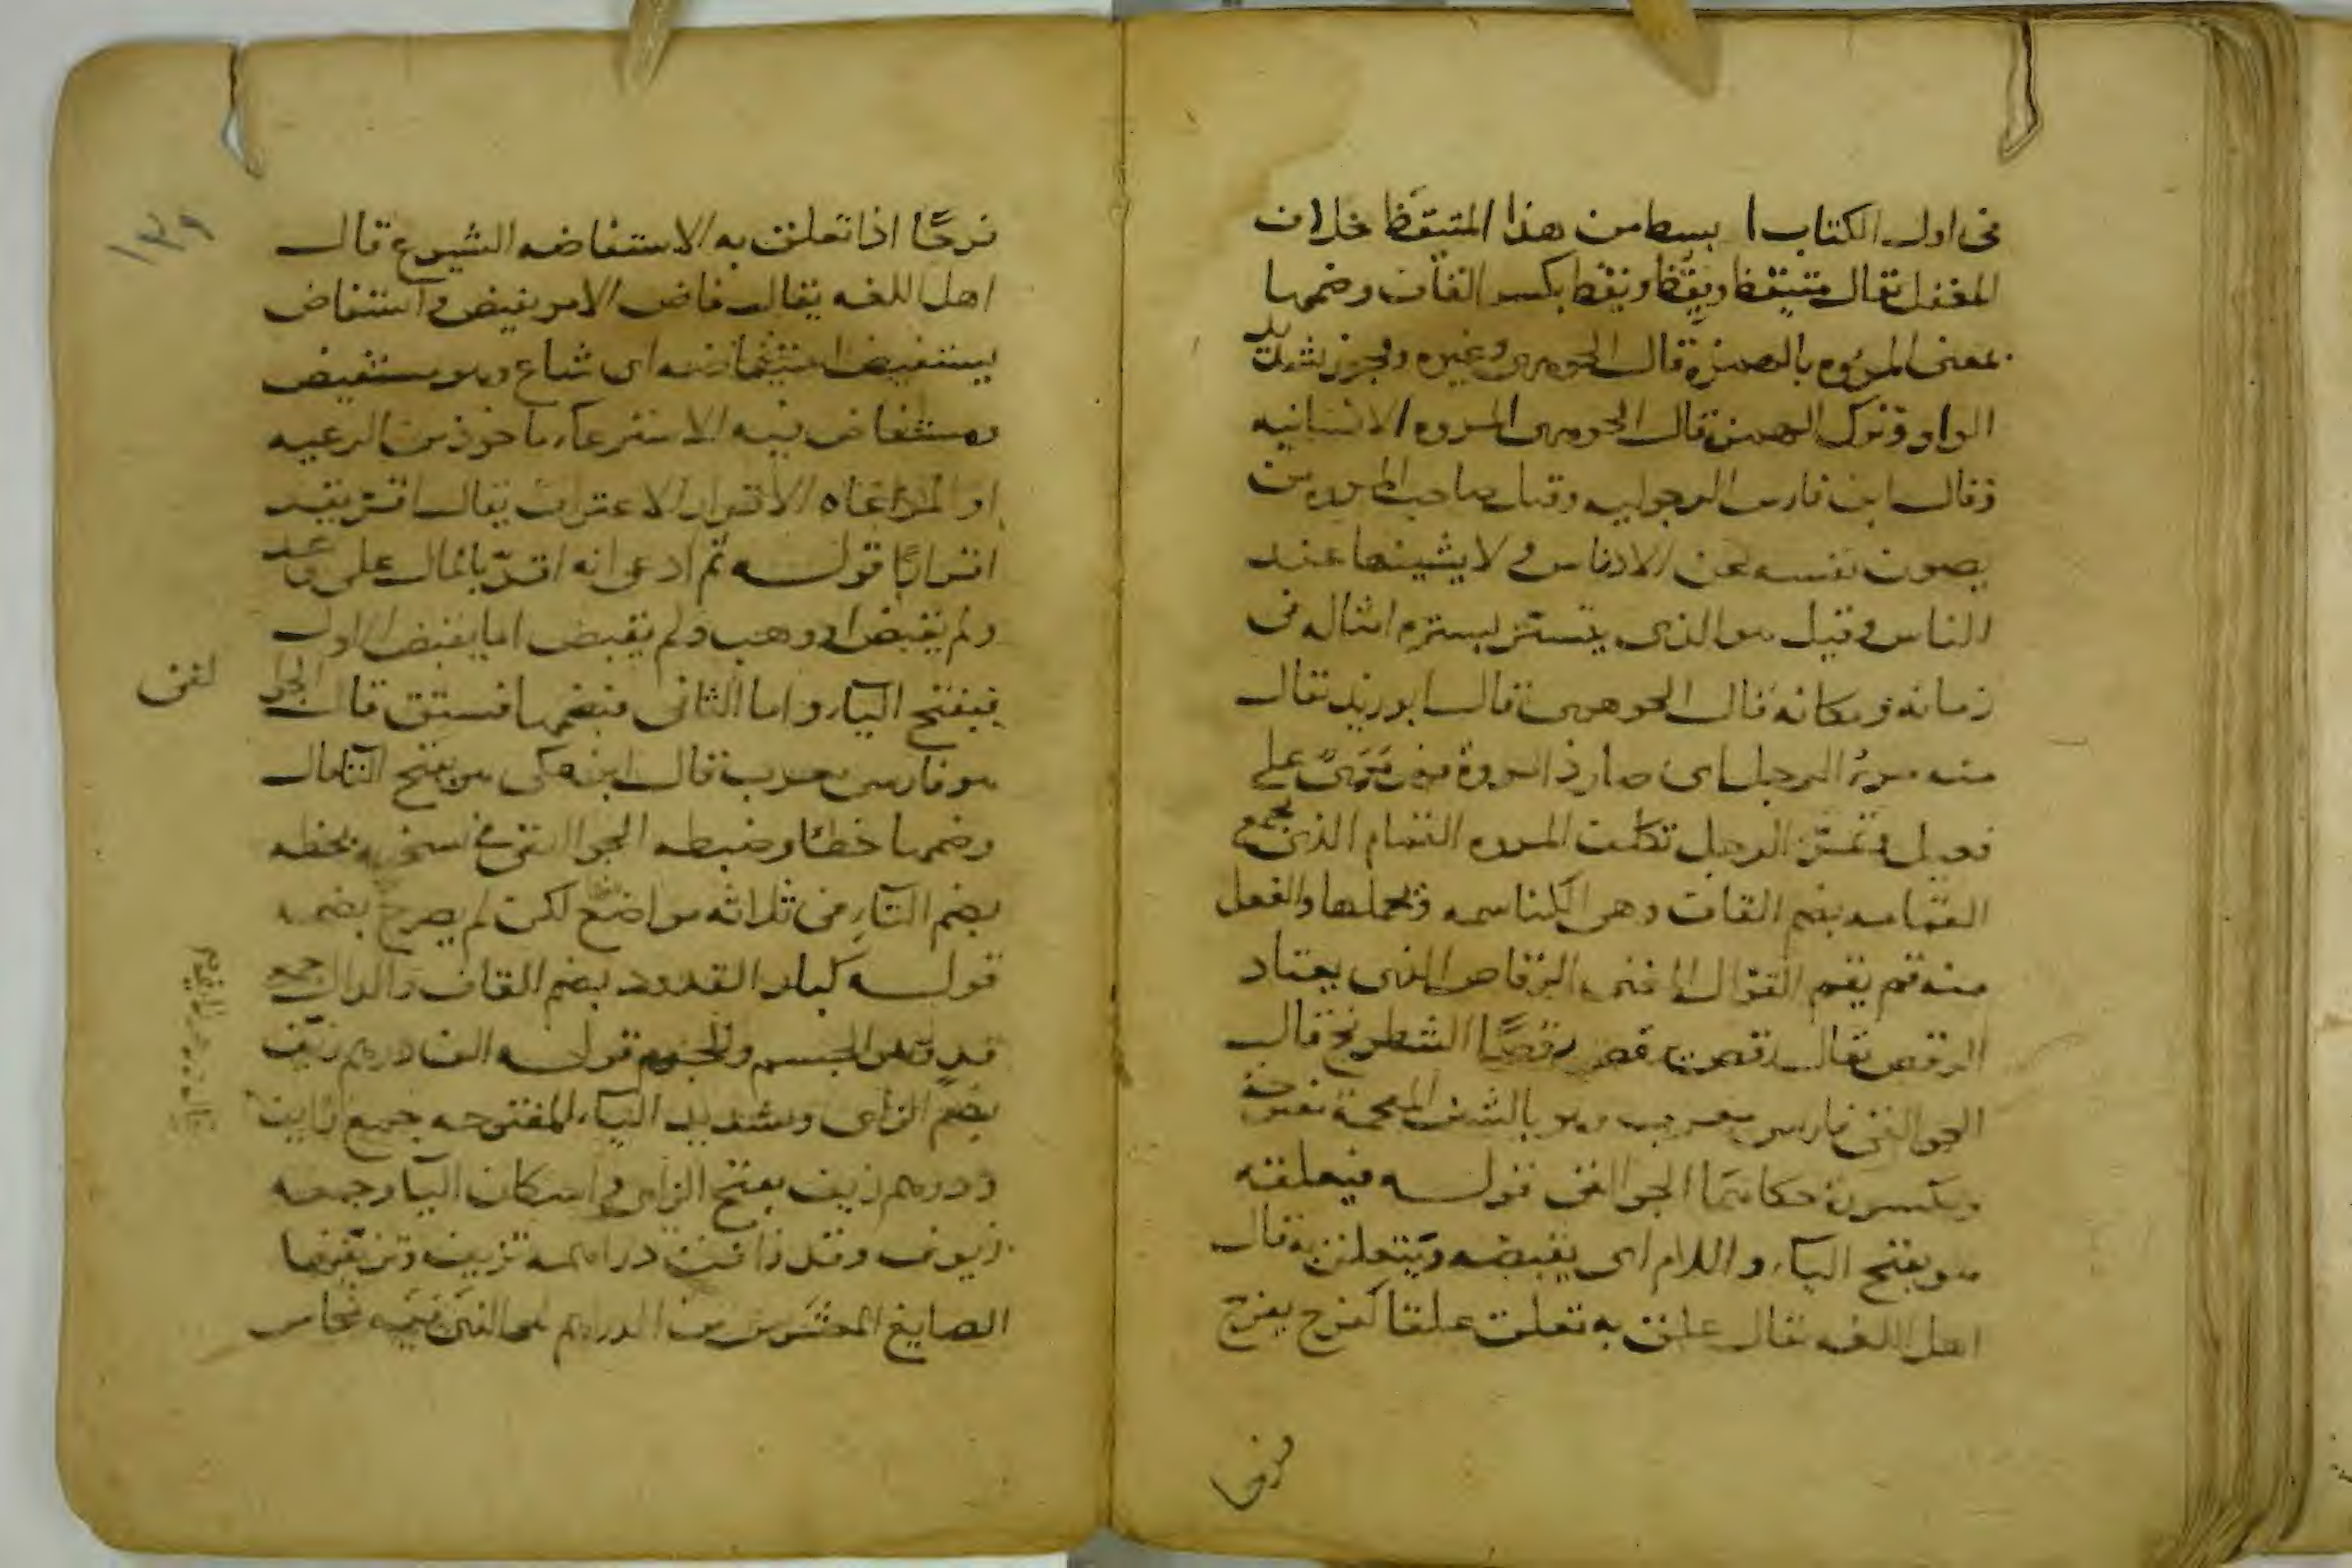 في اول الكتاب ابسط من هذا المتيقظ خلاف
المغفل يقال متيقظ ويقظ ويقظ بكسر القاف وضمها
بمعنى المروءه بالهمزة قال الجوهري وغيره ويجوز تشديد
الواو وترك الهمزة قال الجوهري المروه الانسانيه
وقال ابن فارس الرجوليه وقيل صاحب المروه من
يصون نفسه عن الادناس ولا يشينها عند
الناس وقيل هو الذي يتستر بستره امثاله في
زمانه ومكانه قال الجوهري قال ابو زيد يقال
منه مرؤ الرجل اي صار ذا مروة فهو مريء على
فعيل وتمرّأ الرجل تكلف المروه القمام الذي يجمع
القمامه بضم القاف وهي الكناسه ويحملها والفعل
منه قم يقم القوال المغني الرقاص الذي يعتاد
الرقص يقال رقص يرقص رقصًا الشطرنج قال
الجواليقي فارسي معرب وهو بالشين المعجمة مفتوحة
ومكسورة حكاهما الجواليقي قوله فيعلقه
هو بفتح الياء واللام اي يقبضه ويتعلق به قال
اهل اللغه يقال علق به تعلق علقا كفرح يفرح
فرحا
١٣٩
فرحًا اذا تعلق به الاستفاضه الشيوع قال
اهل اللغه يقال فاض الامر يفيض واستفاض
يستفيض استفاضه اي شاع وهو مستفيض
ومستفاض فيه الاسترعاء ماخوذ من الرعيه
او المراعاه الاقرار الاعتراف يقال اقر يقر
اقرارًا قوله ثم ادعى انه اقرّ بالمال على وعد
ولم يقبض او وهب ولم يقبض اما يقبض الاول
فبفتح الياء واما الثاني فبضمها فستق قال الجوا
ليقي
هو فارسي معرب قال ابن مكي هو بفتح التا قال
وضمها خطا وضبطه الجواليقي في نسخه بخطه
بضم التاء في ثلاثه مواضع لكن لم يصرح بضمه
قوله كبار القدود بضم القاف والدال جمع
قد وهي الجسم والحجم قوله الف درهم زيّف
بضم الزاي وتشديد الياء المفتوحه جمع زايف
ودرهم زيف بفتح الزاي واسكان اليا وجمعه
زيوف وقد زافت دراهمه تزيف وزيّفها
الصايغ المغشوش من الدراهم هي التي فيه نحاس